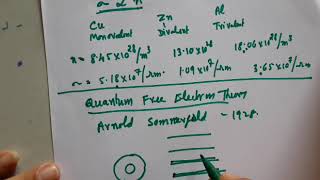 Cu Zn Al
Monovalent Divalent Trivalent
n = 8.45×10²⁸/m³ 13.10×10²⁸ 18.06×10²⁸/m³
= 5.18×10⁷/Ωm. 1.09×10⁷/Ωm. 3.65×10⁷/Ωm.
Quantum Free Electron Theory
Arnold Sommerfeld – 1928.